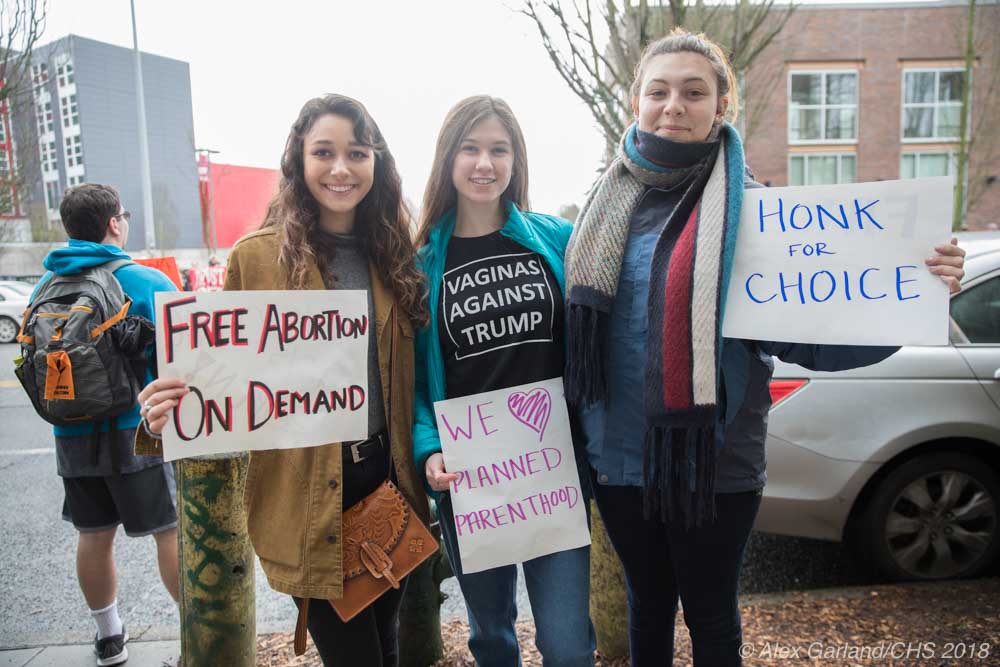 FREE ABORTION
ON DEMAND
VAGINAS
AGAINST
TRUMP
WE
PLANNED
PARENTHOOD
HONK
FOR
CHOICE
© Alex Garland/CHS 2018